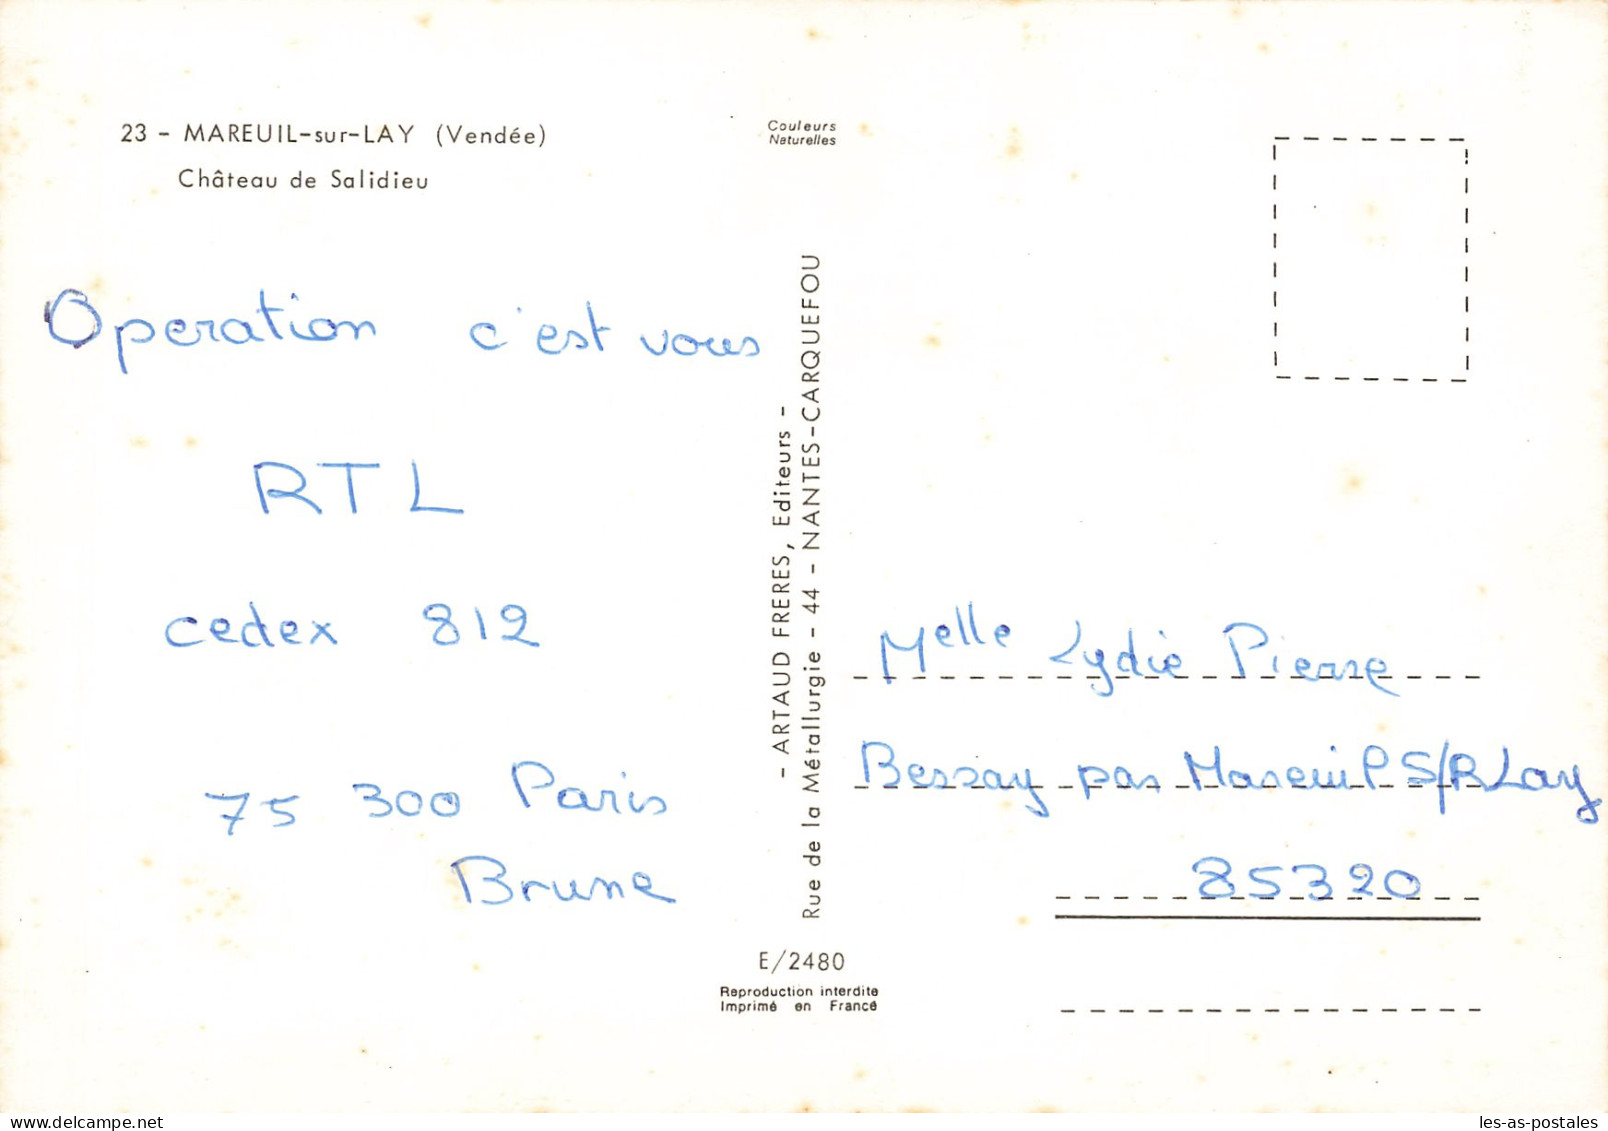 23 - MAREUIL-sur-LAY (Vendée)
Château de Salidieu
Couleurs
Naturelles
Operation c'est vous
RTL
cedex 812
75 300 Paris
Brune
- ARTAUD FRERES, Editeurs -
Rue de la Métallurgie - 44 - NANTES-CARQUEFOU
Melle Lydie Pierre
Bessay par Mareuil S/R Lay
85320
E/2480
Reproduction interdite
Imprimé en France
les-as-postales